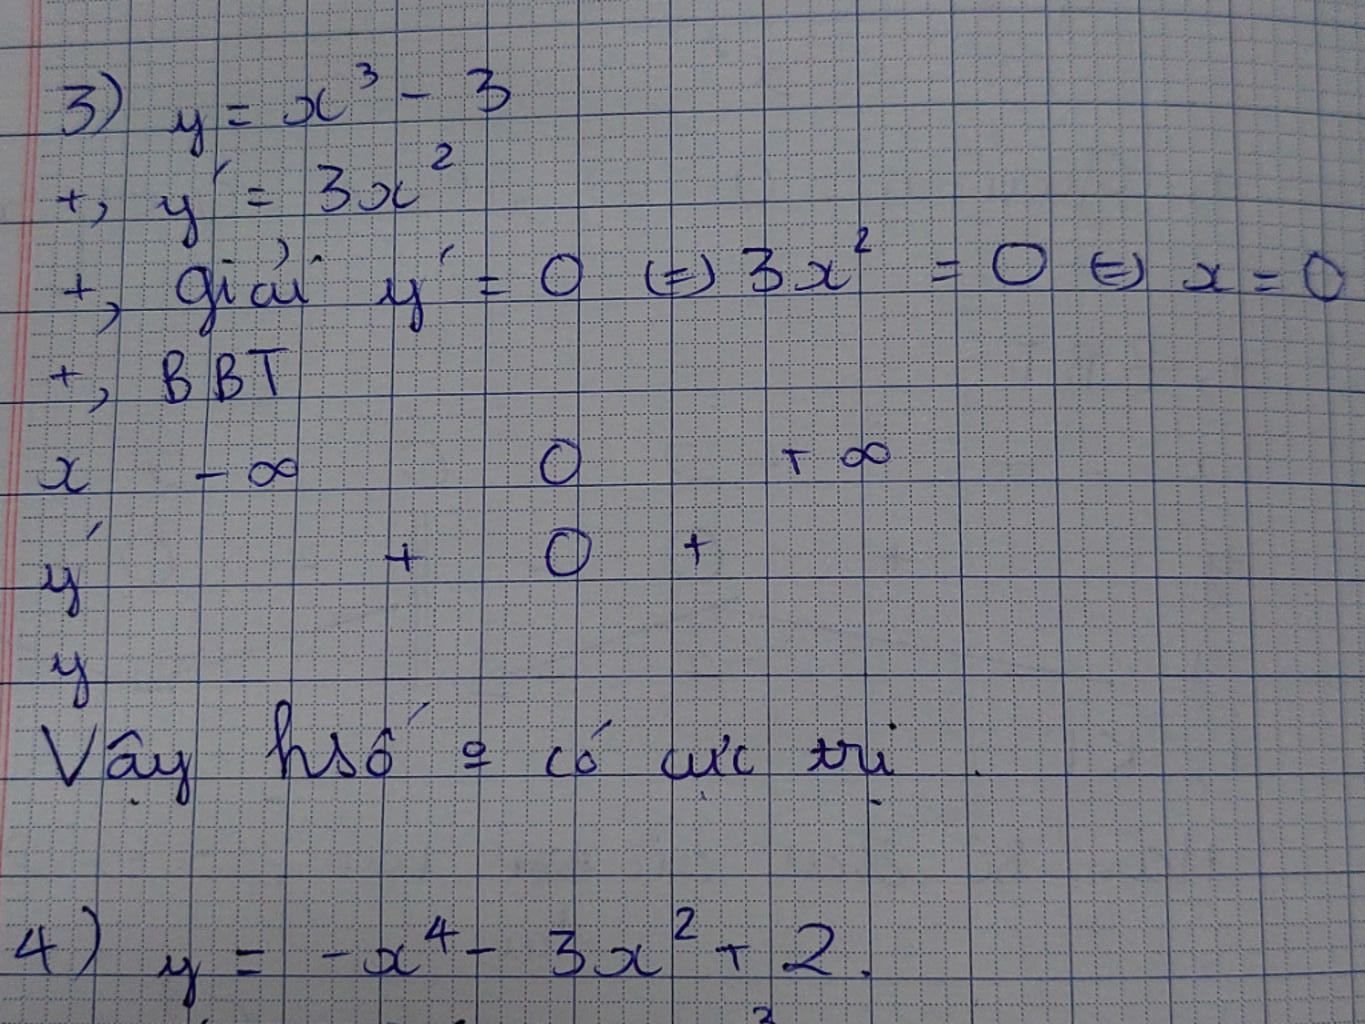 3) y = x³ - 3
+, y' = 3x²
+, giải y' = 0 (=) 3x² = 0 (=) x = 0
+, BBT
x - ∞ 0 + ∞
y' + 0 +
y
Vậy hsố o có cực trị.
4) y = -x⁴ - 3x² + 2.